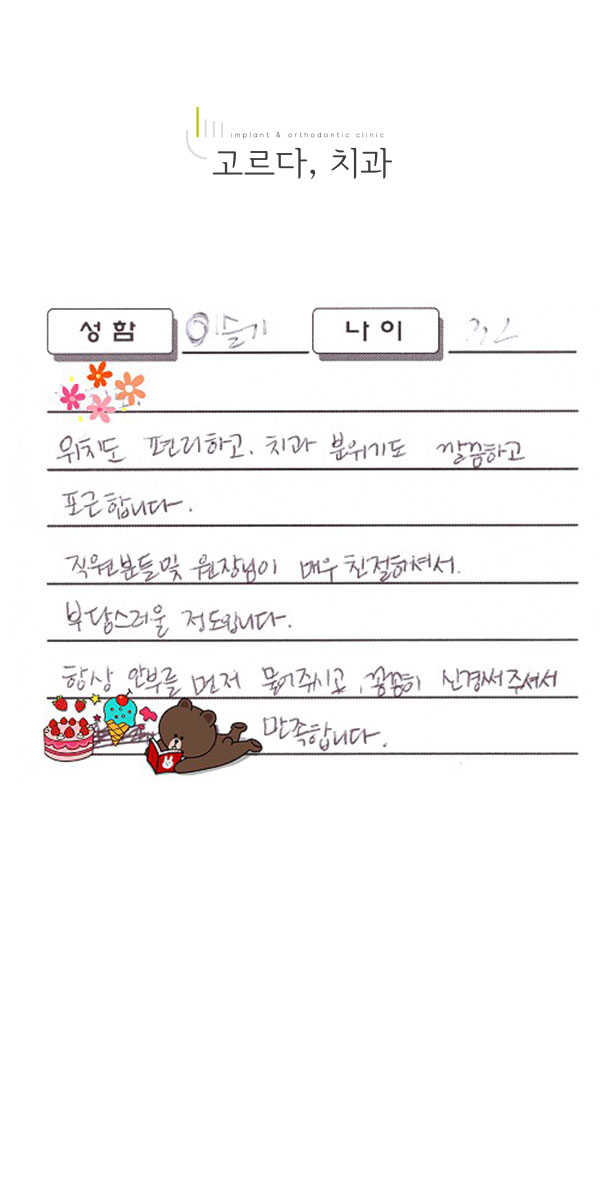 implant & orthodontic clinic
고르다, 치과
성함 나이
위치도 편리하고. 치과 분위기도 깔끔하고
포근합니다.
직원분들및 원장님이 매우 친절하셔서.
부담스러울 정도입니다.
항상 안부를 먼저 물어주시고, 꼼꼼히 신경써주셔서
만족합니다.